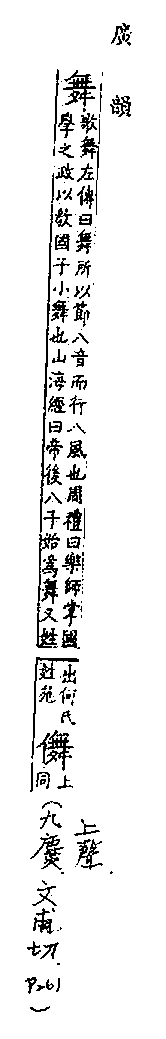 廣韻
舞
歌舞左傳曰舞所以節八音而行八風也周禮曰樂師掌國
學之政以敎國子小舞也山海經曰帝後八子始爲舞又姓
出何氏
姓苑
儛
上
同
上聲
(九麌 文甫切 P261)